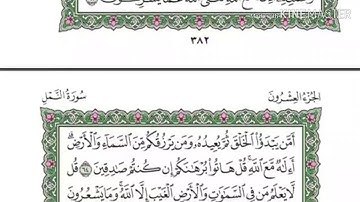 KINEMASTER
٣٨٢
الجُزءُ العِشْرُونَ
سُورَةُ النَّمْلِ
أَمَّن يَبْدَؤُا الْخَلْقَ ثُمَّ يُعِيدُهُ وَمَن يَرْزُقُكُم مِّنَ السَّمَاءِ وَالْأَرْضِ
أَءِلَٰهٌ مَّعَ اللَّهِ قُلْ هَاتُوا بُرْهَانَكُمْ إِن كُنتُمْ صَادِقِينَ ٦٤ قُل
لَّا يَعْلَمُ مَن فِي السَّمَاوَاتِ وَالْأَرْضِ الْغَيْبَ إِلَّا اللَّهُ وَمَا يَشْعُرُونَ